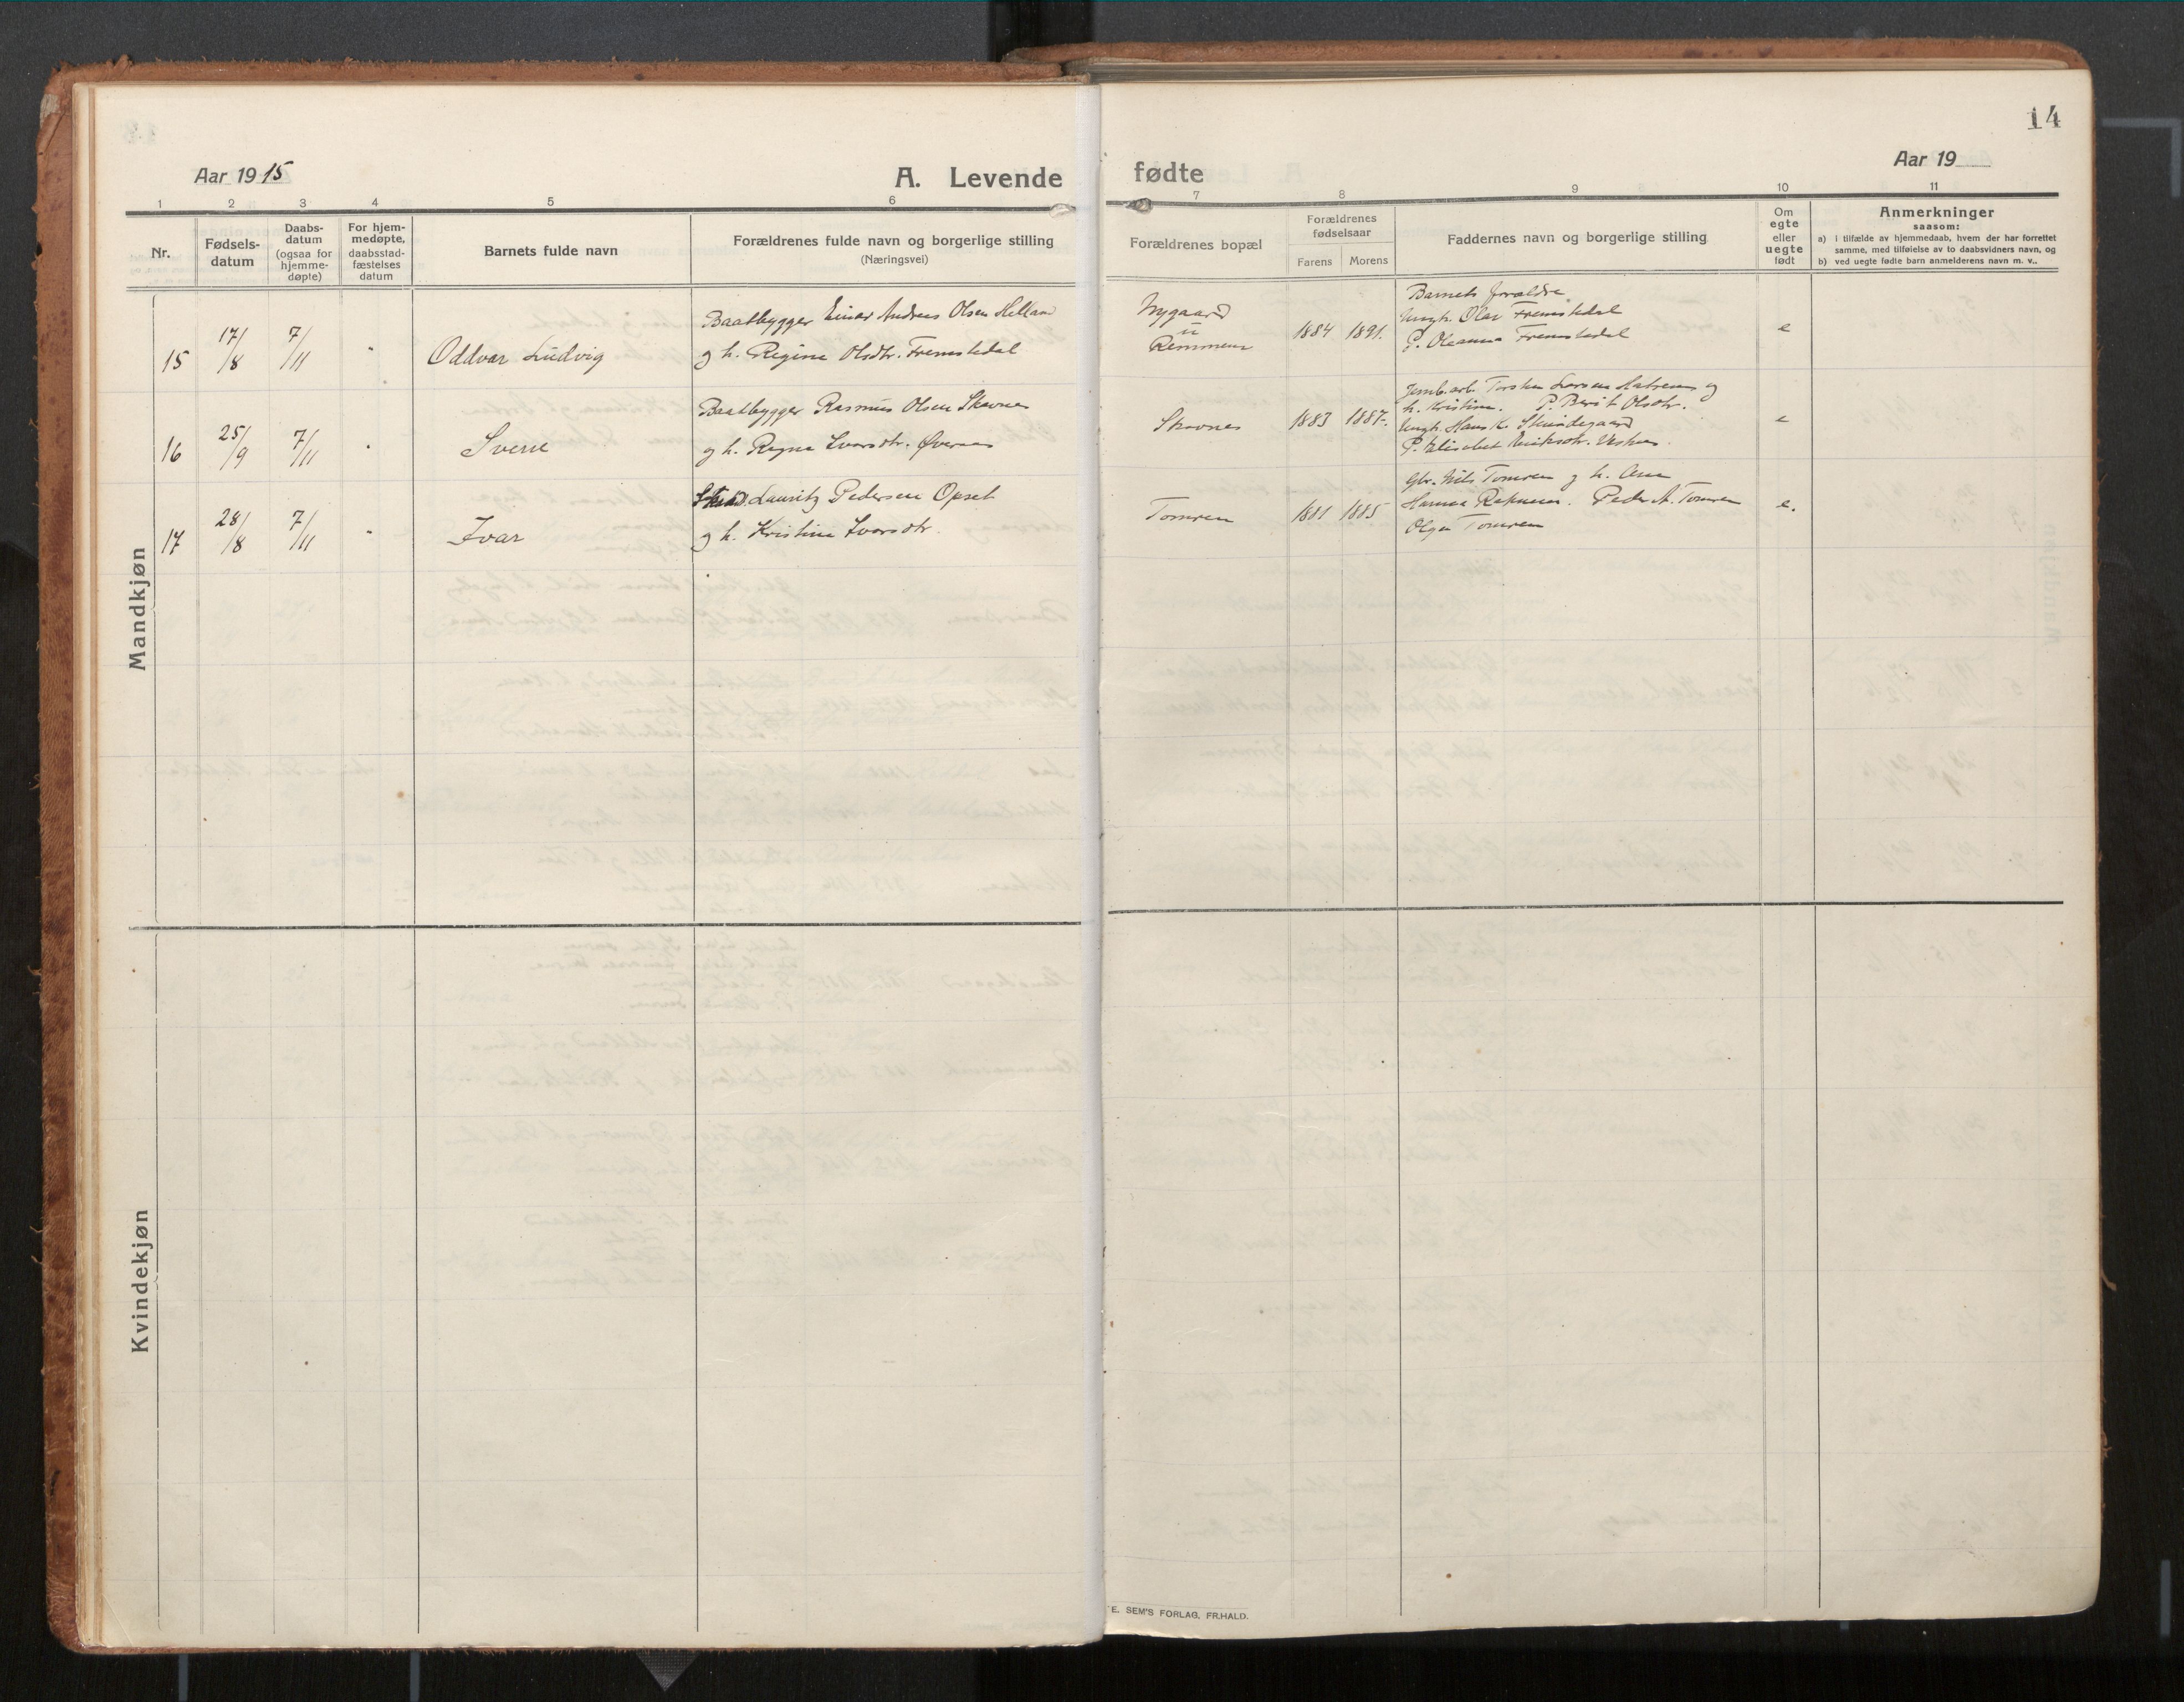 14
Aar 1915
A. Levende fødte
Aar 19
1 2 3 4 5 6 7 8 9 10 11
Nr.
Fødsels-
datum
Daabs-
datum
(ogsaa for
hjemme-
døpte)
For hjem-
medøpte,
daabsstad-
fæstelses
datum
Barnets fulde navn
Forældrenes fulde navn og borgerlige stilling
(Næringsvei)
Forældrenes bopæl
Forældrenes
fødselsaar
Farens Morens
Faddernes navn og borgerlige stilling
Om
egte
eller
uegte
født
Anmerkninger
saasom:
a) i tilfælde av hjemmedaab, hvem der har forrettet
samme, med tilføielse av to daabsvidners navn, og
b) ved uegte fødte barn anmelderens navn m. v..
Mandkjøn
15 17/8 7/11 " Oddvar Ludvig
Baatbygger Einar Andreas Olsen Helland
og h. Regine Olsdtr. Fremstedal
Nygaard
u
Remmem
1884 1891.
Barnets forældre
Ungk. Olav Fremstedal
P. Oleanna Fremstedal
e
16 25/9 7/11 " Sverre
Baatbygger Rasmus Olsen Skovnes
og h. Regna Ivarsdtr. Øveraas
Skovnes
1883 1887.
Jernb.arb. Torsten Larsen og
h. Kristine. P. Berit Olsdtr.
Ungk. Hans K.
P. Elisabet Eriksdtr.
e
17 28/8 7/11 " Ivar
Lauritz Pedersen Opset
og h. Kristine Ivarsdtr.
Tomren
1881 1885
Gbr. Nils Tomren og h. Ane
Hanna Reknem. Peder A. Tomren
Olga Tomren
e.
Kvindekjøn
E. SEM'S FORLAG, FR.HALD.